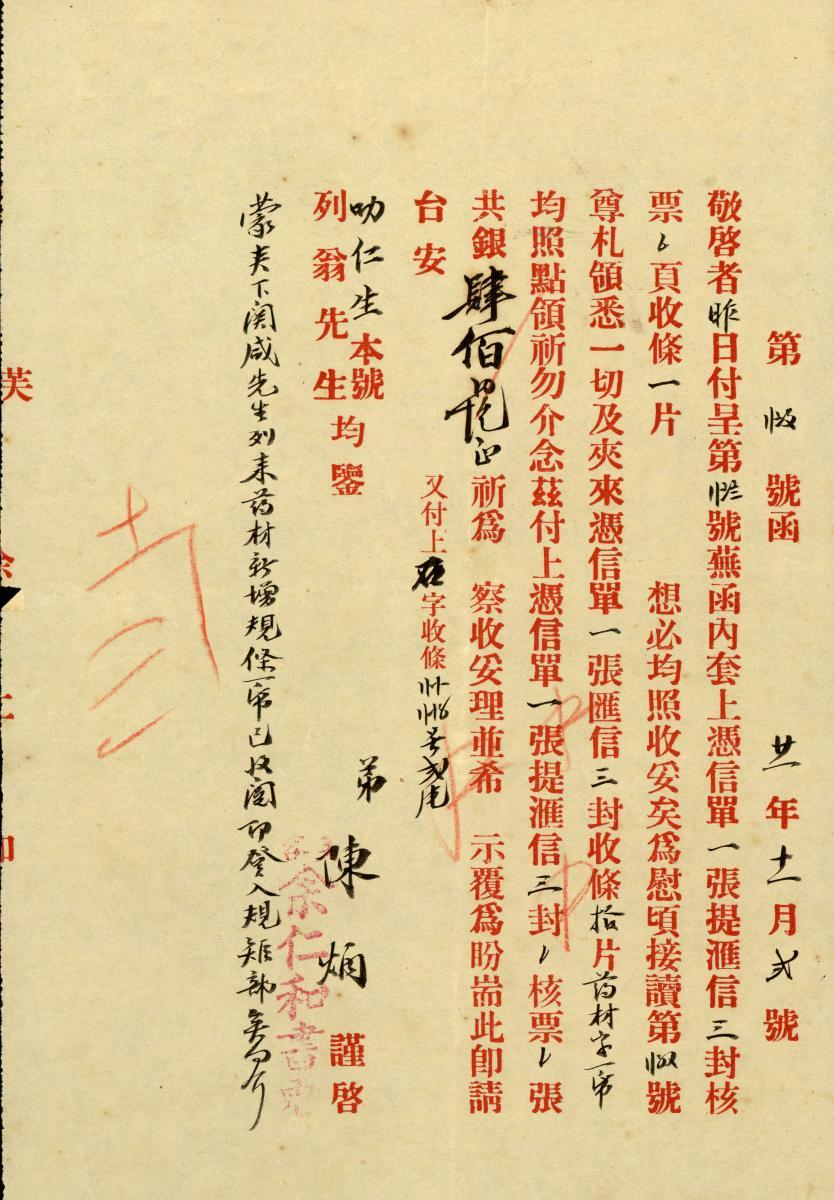 第 號函 廿一年十一月弍號
敬啓者昨日付呈第 號蕪函內套上憑信單一張提滙信三封核
票 頁收條一片 想必均照收妥矣爲慰頃接讀第 號
尊札領悉一切及夾來憑信單一張匯信三封收條拾片药材字一帋
均照點領祈勿介念茲付上憑信單一張提滙信三封 核票 張
共銀肆佰 正祈爲 察收妥理並希 示覆爲盼耑此卽請
台安 又付上 字收條 号弍毛
叻仁生本號
列翁先生均鑒
弟陳炳謹啓
余仁和書柬
蒙夫下関咸先生列来药材新增規條一帋已收閱即登入規矩部 介
十一 二
芙 余 仁 和